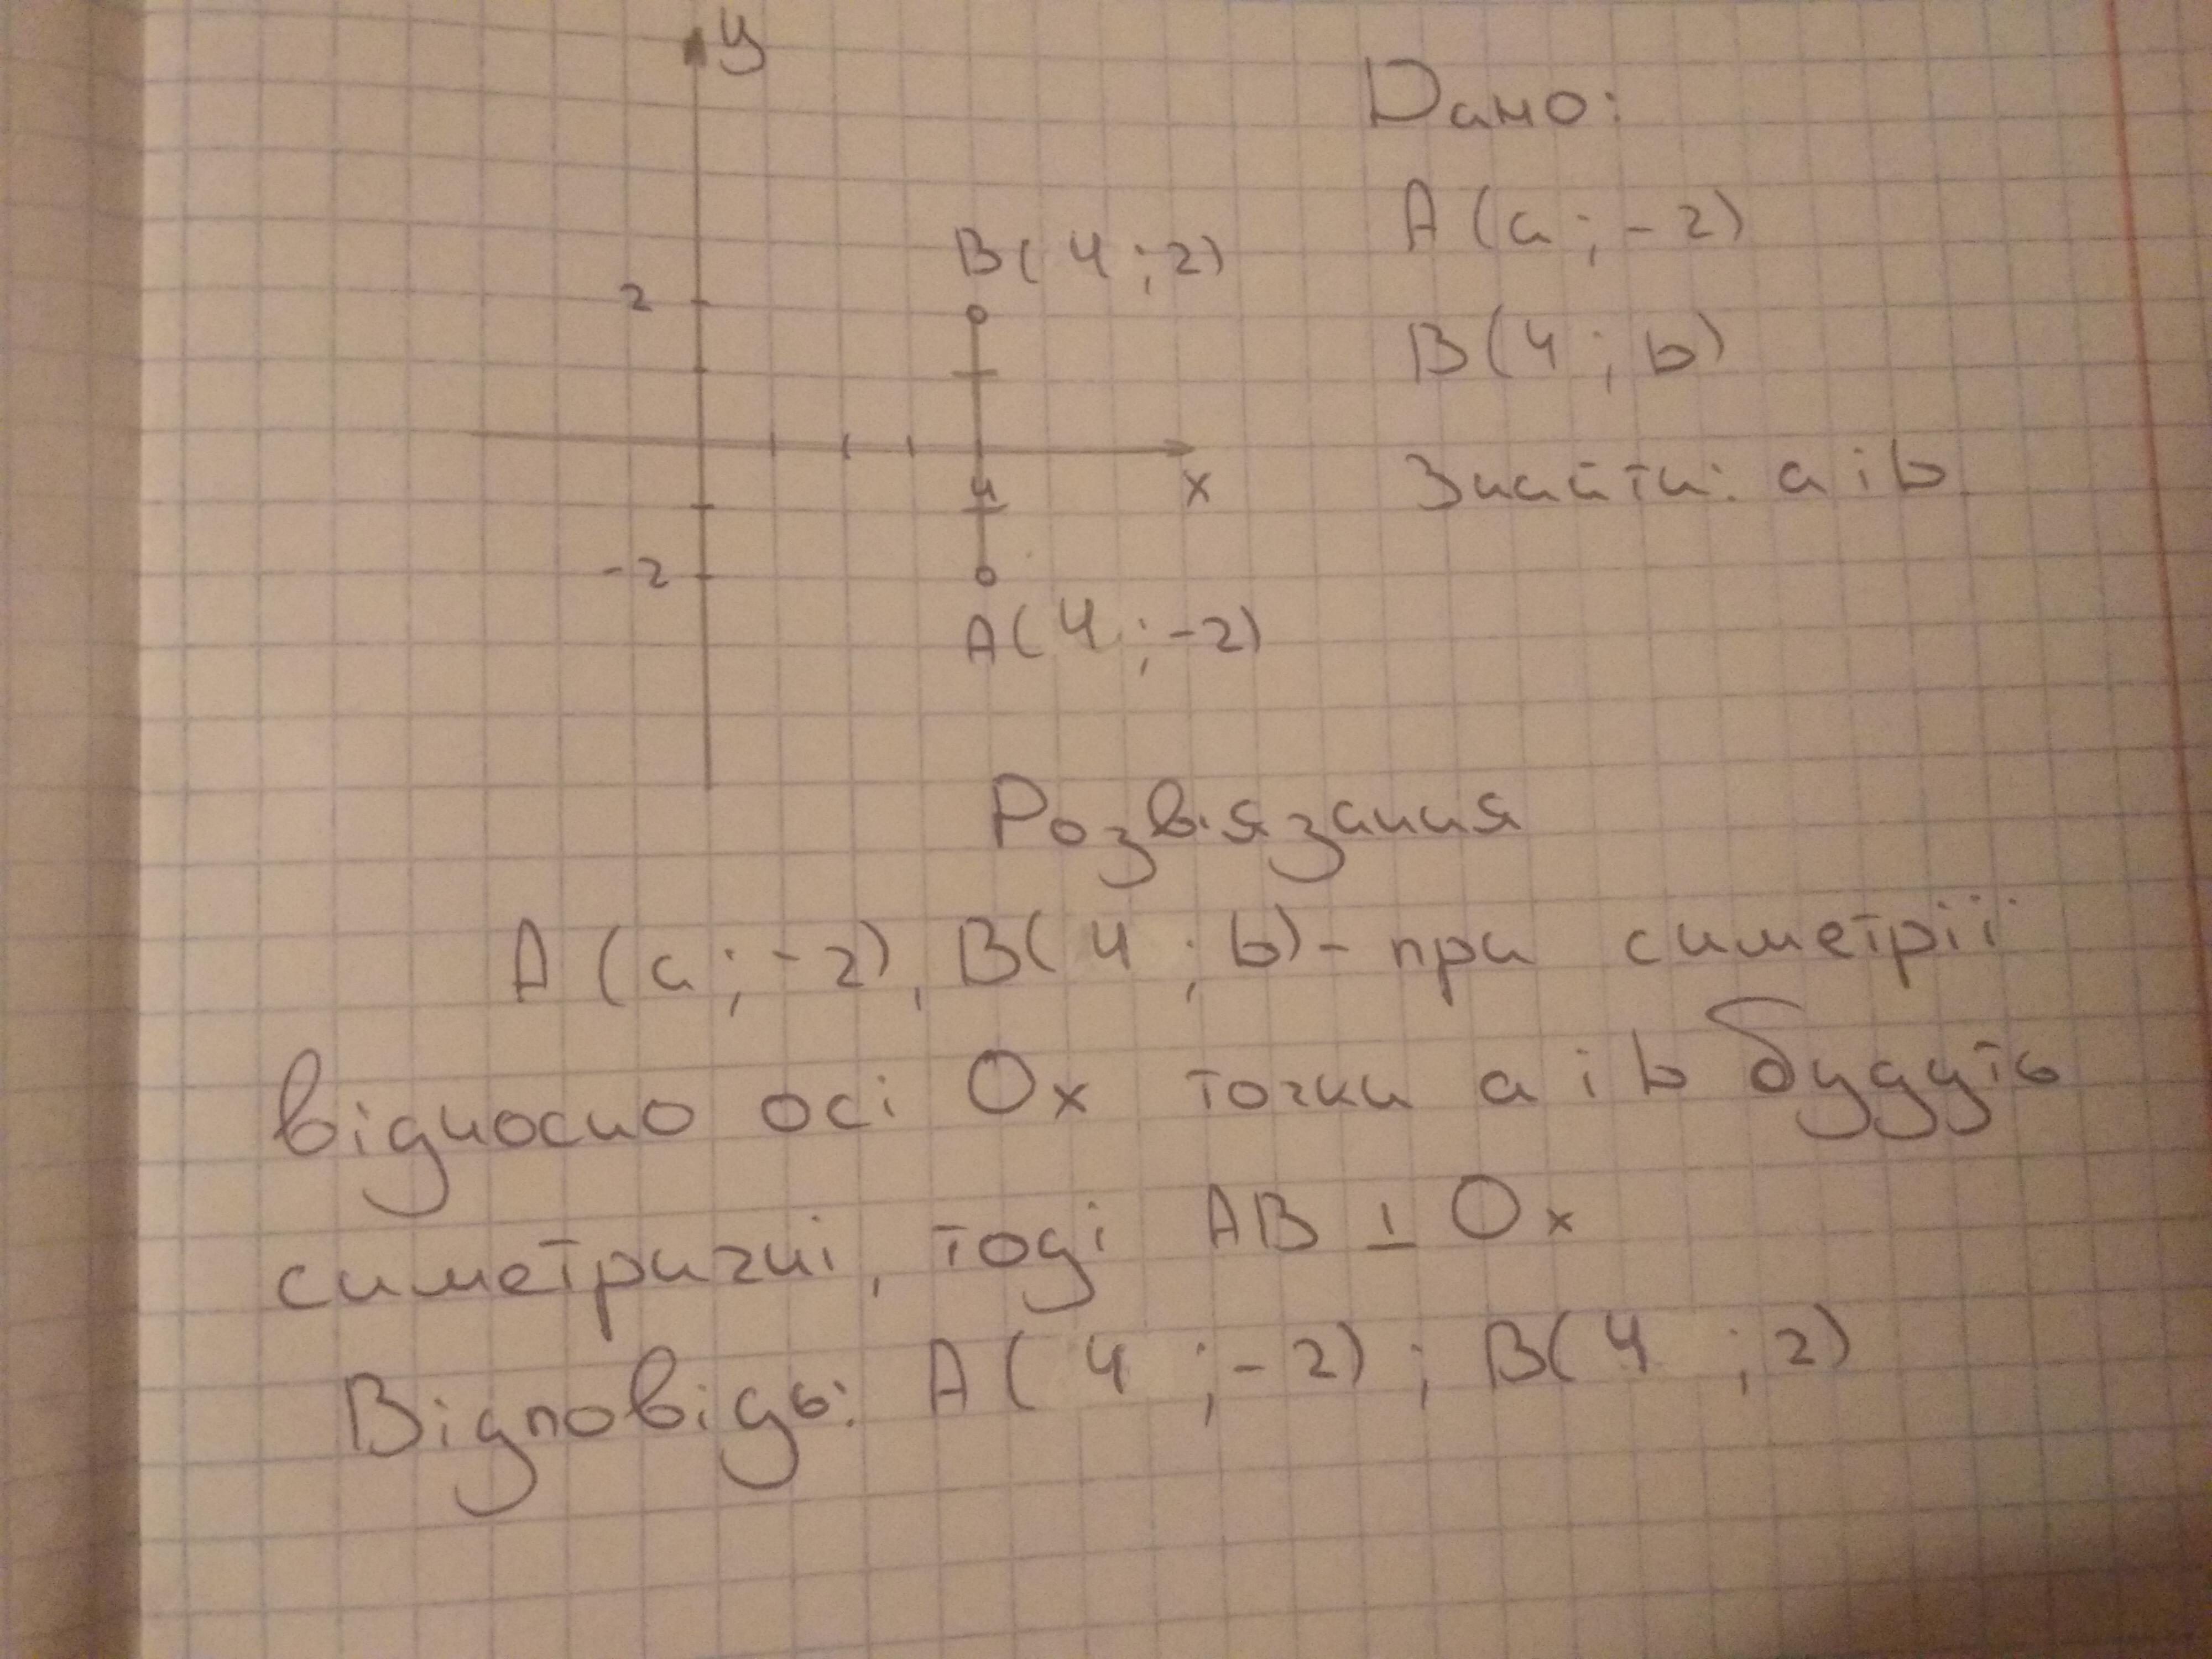 y
Дано:
A(a;-2)
B(4;b)
Знайти: a i b
B(4;2)
2
4
x
-2
A(4;-2)
Розвязання
A(a;-2), B(4;b)- при симетрії
відносно осі Ox точки a i b будуть
симетричні, тоді AB ⊥ Ox
Відповідь: A(4;-2); B(4;2)